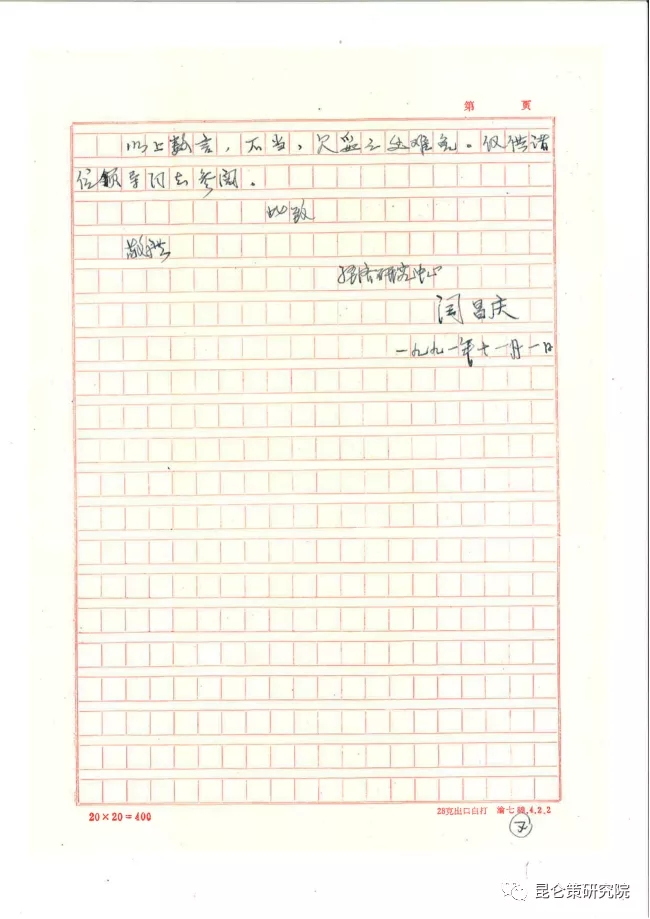 第 页
以上数言，不当，欠妥之处难免。仅供诸
位领导同志参阅。
此致
敬礼
经济研究中心
闫昌庆
一九九一年十一月一日
20×20=400
28克出口白打 渝七 4.2.2
昆仑策研究院